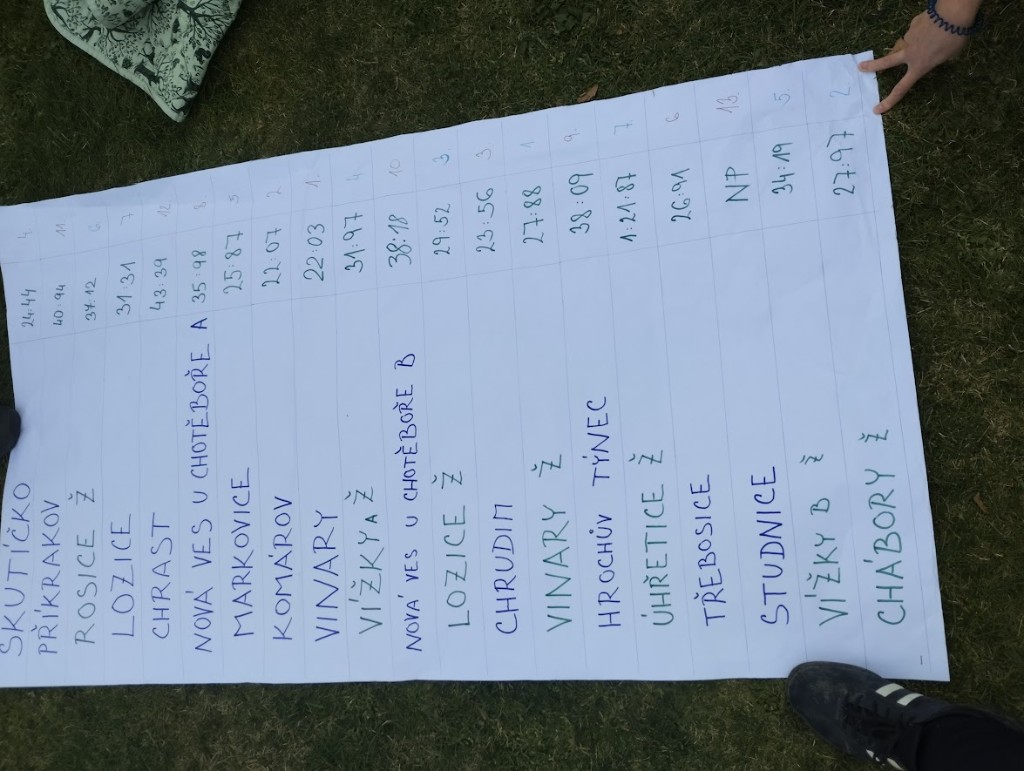 SKUTÍČKO 24:44 4.
PŘÍKRAKOV 40:94 11
ROSICE Ž 37:12 6
LOZICE 31:31 7
CHRAST 43:39 12
NOVÁ VES U CHOTĚBOŘE A 35:98 8
MARKOVICE 25:87 5
KOMÁROV 22:07 2.
VINARY 22:03 1.
VÍŽKY A Ž 31:97 4.
NOVÁ VES U CHOTĚBOŘE B 38:18 10
LOZICE Ž 29:52 3
CHRUDIM 23:56 3
VINARY Ž 27:88 1
HROCHŮV TÝNEC 38:09 9.
ÚHŘETICE Ž 1:21:87 7
TŘEBOSICE 26:91 6
STUDNICE NP 13.
VÍŽKY B Ž 34:19 5
CHÁBORY Ž 27:97 2